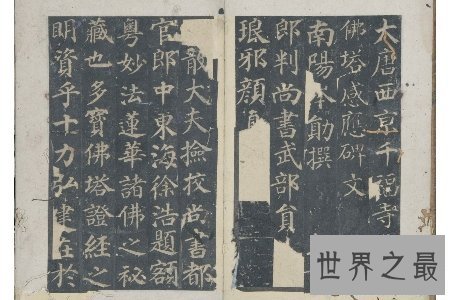 大唐西京千福寺
佛塔感應碑文
南陽勛撰
郎判尚書武部員
琅邪顏
散大夫撿校尚書都
官郎中東海徐浩題額
粵妙法蓮華諸佛之祕
藏也多寶佛塔證經之
明資乎十力弘建在於
世界之最